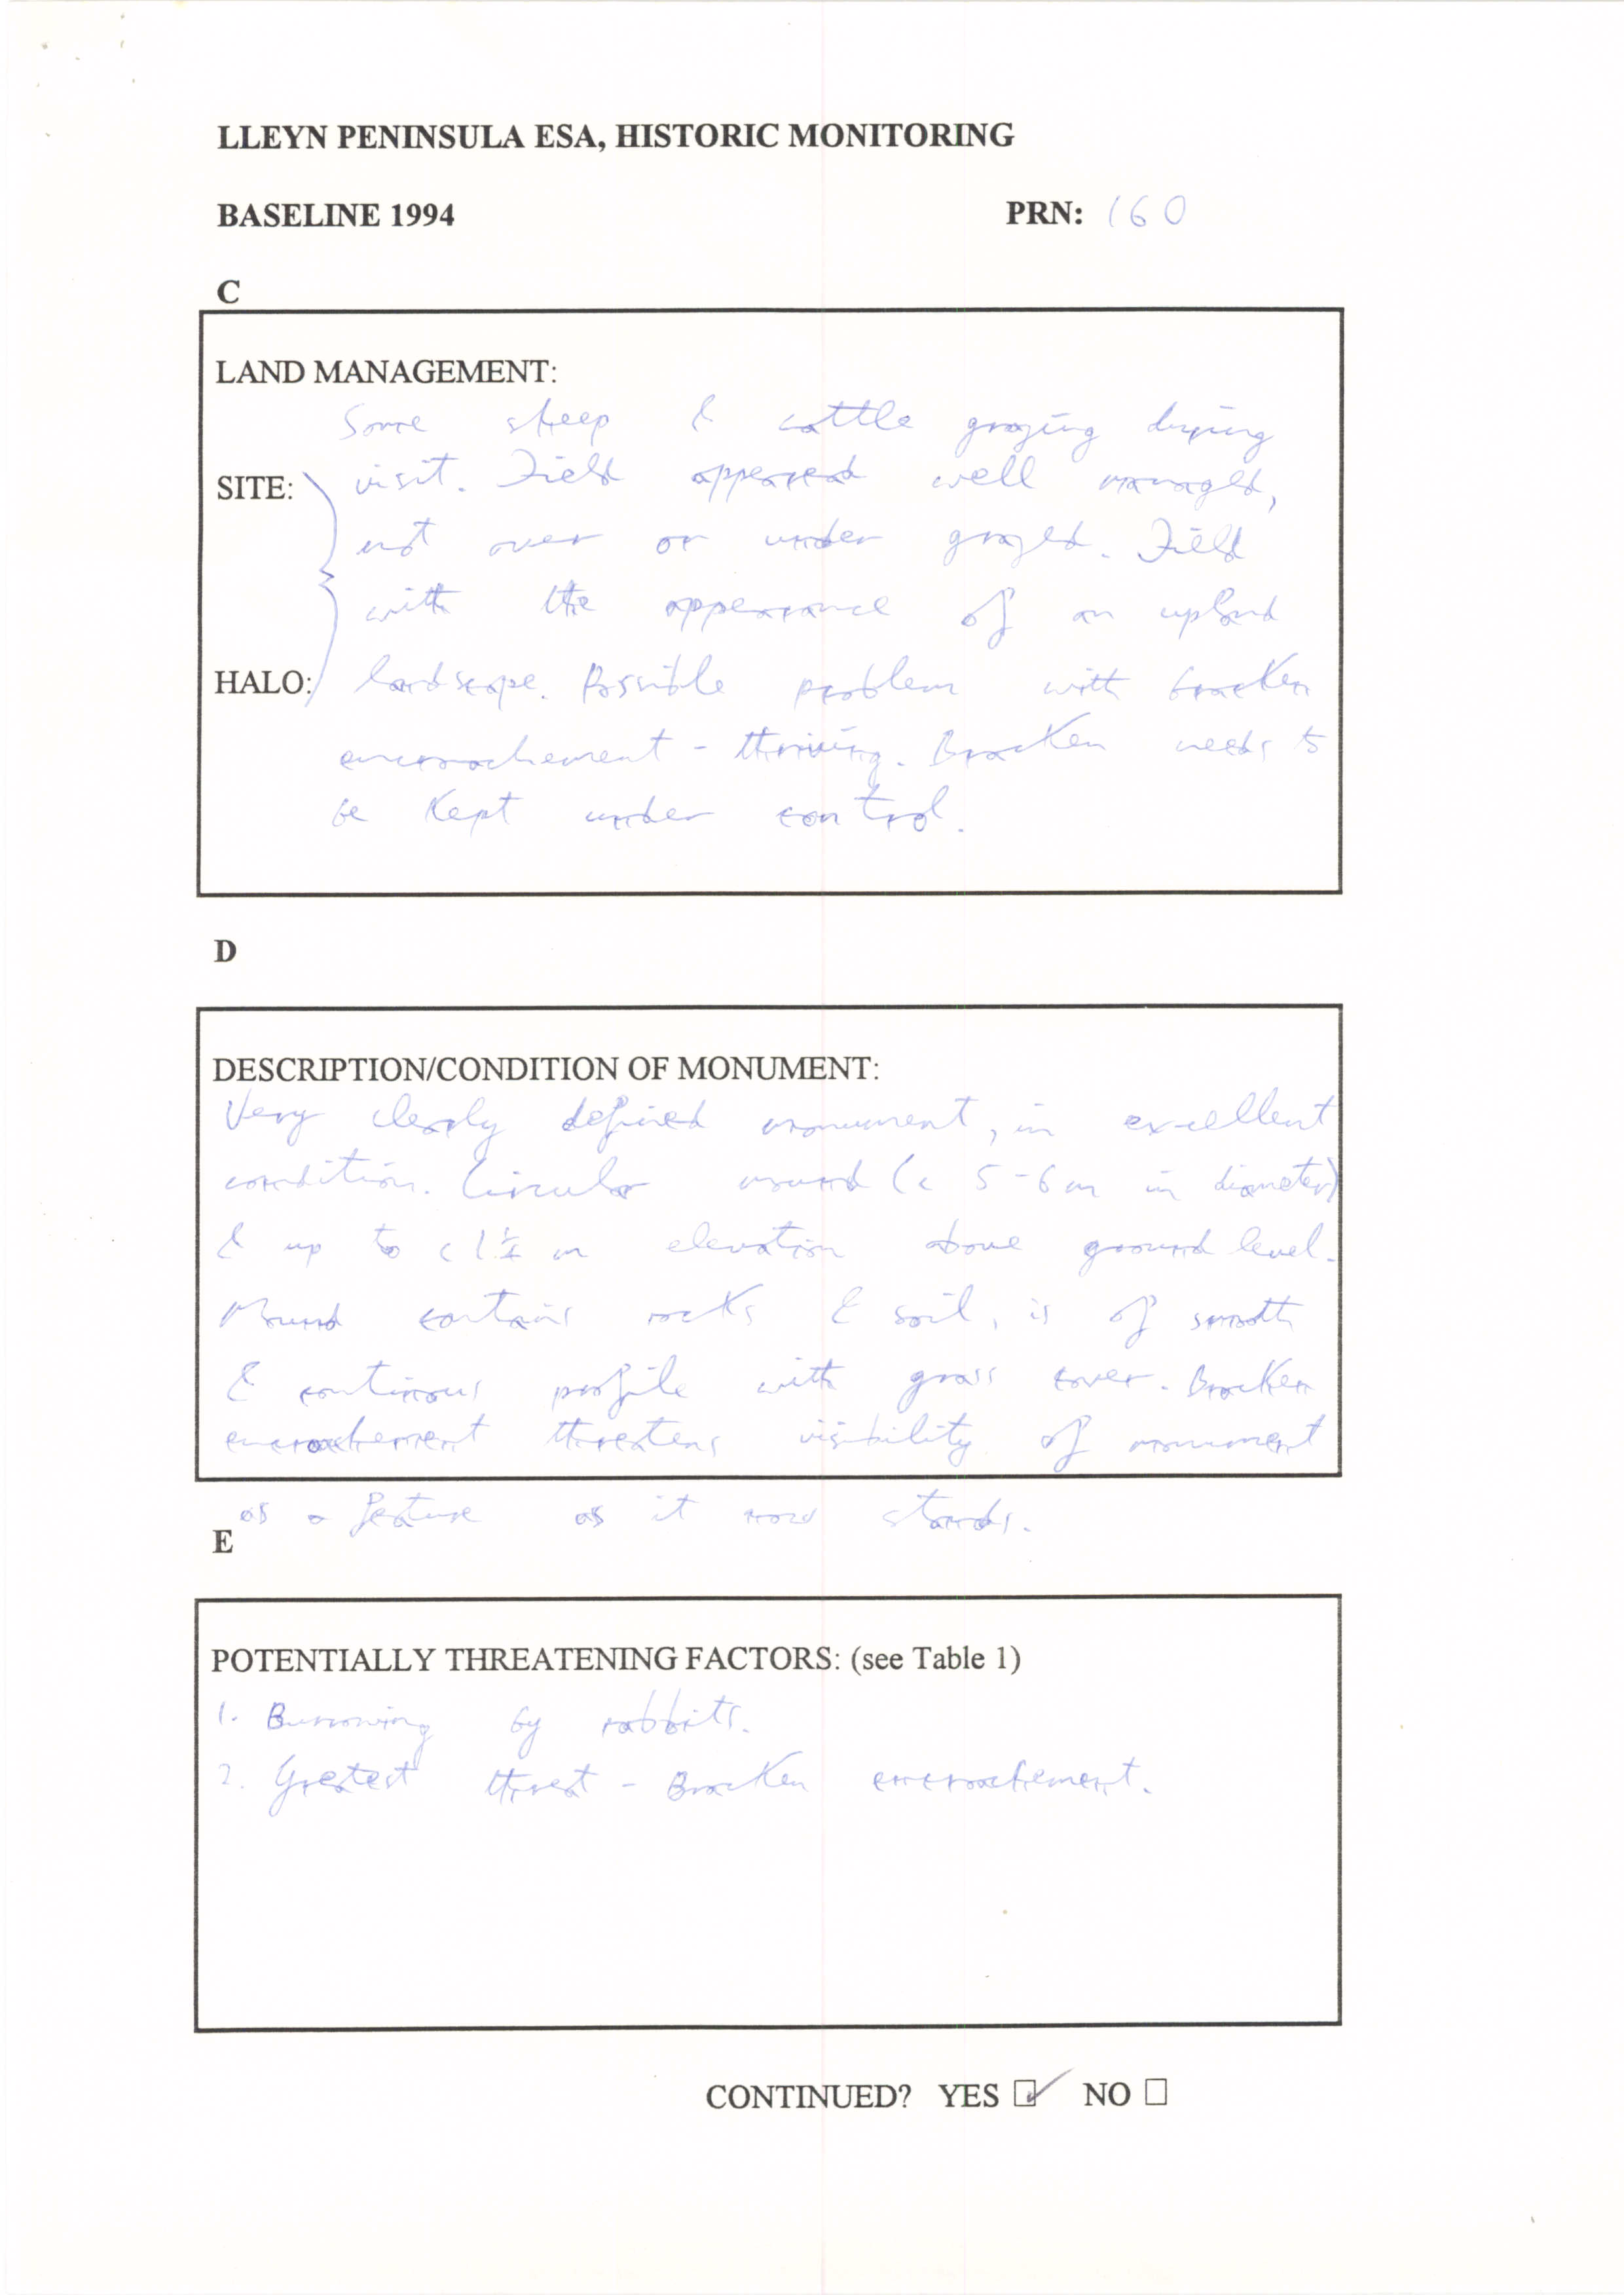 LLEYN PENINSULA ESA, HISTORIC MONITORING
BASELINE 1994 PRN: 160
C
LAND MANAGEMENT:
Some sheep & cattle grazing during
SITE: visit. Field appeared well managed,
not over or under grazed. Field
with the appearance of an upland
HALO: landscape. Possible problem with bracken
encroachement - thriving. Bracken needs to
be kept under control.
D
DESCRIPTION/CONDITION OF MONUMENT:
Very clearly defined monument, in excellent
condition. Circular mound (c 5-6m in diameter)
& up to c 1½ m elevation above ground level.
Mound contains rocks & soil, is of smooth
& continous profile with grass cover. Bracken
encroachement threatens visibility of monument
as a feature as it now stands.
E
POTENTIALLY THREATENING FACTORS: (see Table 1)
1. Burrowing by rabbits.
2. Greatest threat - Bracken encroachement.
CONTINUED? YES ☑ NO ☐